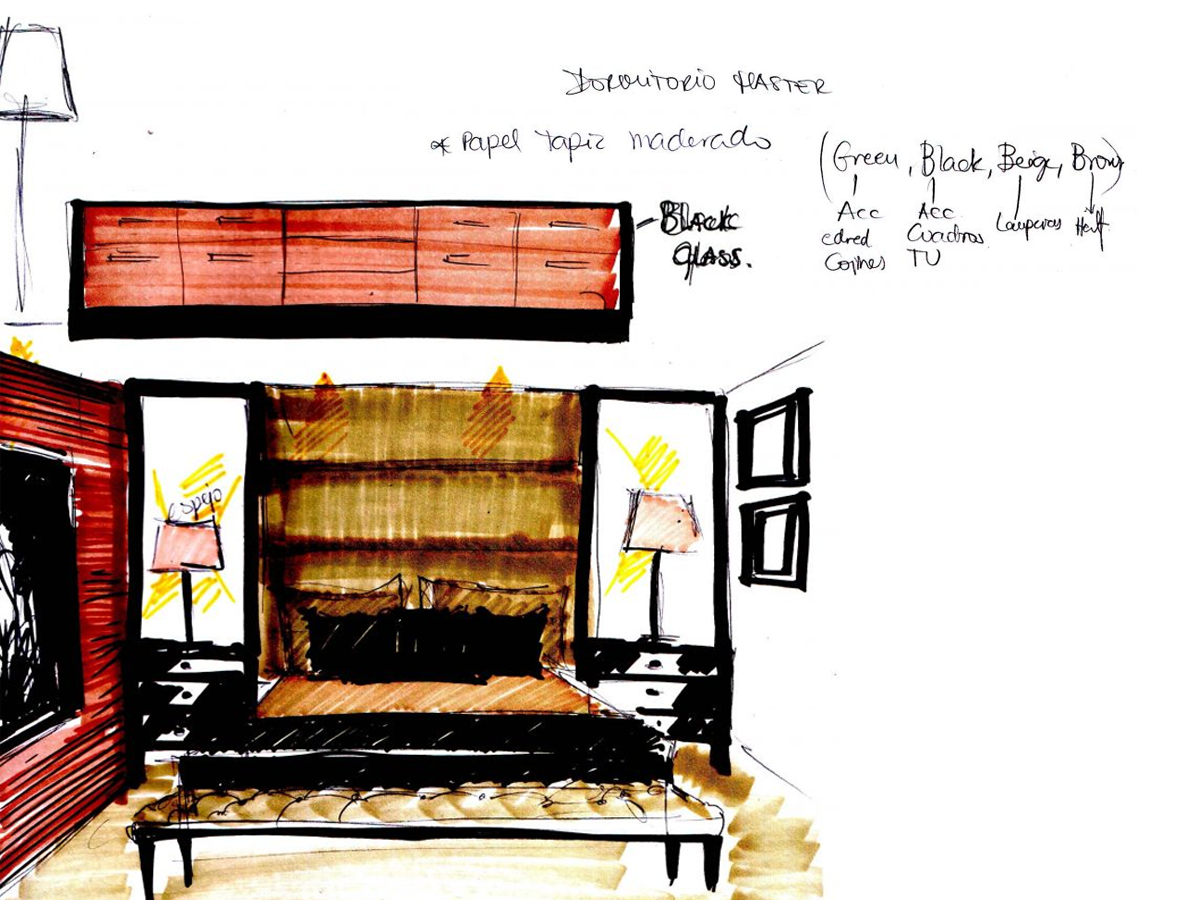 DORMITORIO MASTER
* Papel Tapiz maderado
(Green, Black, Beige, Brown)
Acc Acc
edred Cuadros Lamparas
Cojines TV
Black
Glass.
espejo